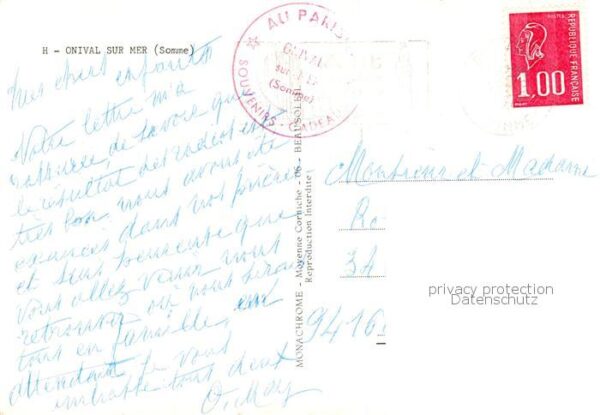 H - ONIVAL SUR MER (Somme)
AU PARIS
ONIVAL
sur-
(Somme)
SOUVENIRS - CADEA
POSTES
REPUBLIQUE FRANÇAISE
1,00
Mes chers enfants
Votre lettre m'a
de savoir que
le résultat des radios est
très bon nous avons été
exaucés dans nos prières
et suis heureuse que
vous allez venir nous
retrouver où nous serons
tous en famille, en
attendant je vous
embrasse tous deux
MONACHROME - Moyenne Corniche - 06 - BEAUSOLEIL
Reproduction Interdite
Monsieur et Madame
Ro
3A
9416
privacy protection
Datenschutz